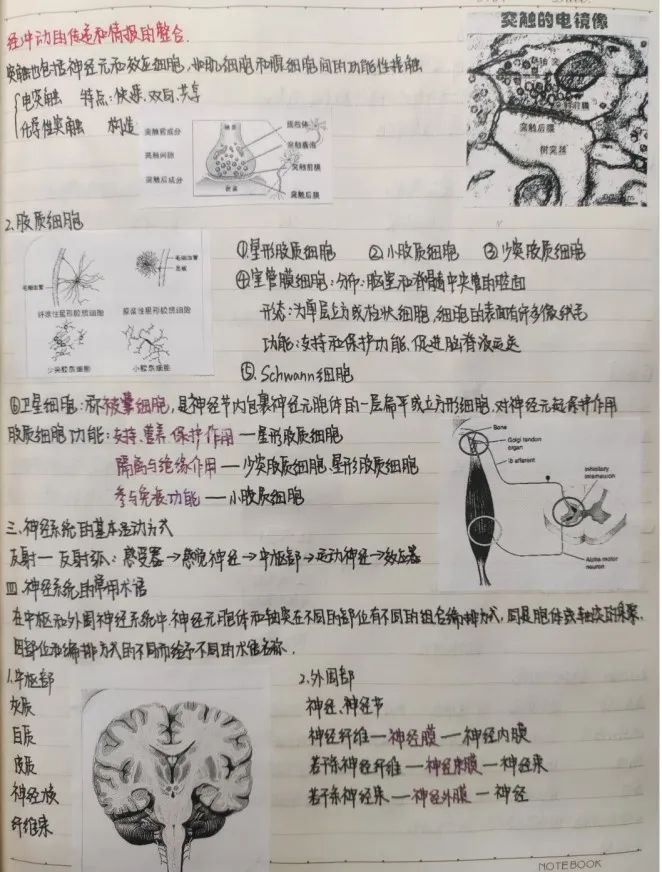 经冲动的传递和情报的整合.
突触也包括神经元和效应细胞,如肌细胞和腺细胞间的功能性接触
电突触 特点:快速、双向、共享
化学性突触 构造
突触前成分
突触间隙
突触后成分
轴突
线粒体
突触囊泡
突触前膜
突触后膜
突触的电镜像
轴突
突触前膜
突触后膜
树突棘
2.胶质细胞
毛细血管
毛细血管
纤维性星形胶质细胞
原浆性星形胶质细胞
少突胶质细胞
小胶质细胞
①星形胶质细胞 ②小胶质细胞 ③少突胶质细胞
④室管膜细胞:分布:脑室和脊髓中央管的腔面
形态:为单层立方或柱状细胞,细胞的表面有许多微绒毛
功能:支持和保护功能,促进脑脊液运送
⑤.Schwann细胞
⑥卫星细胞:亦称被囊细胞,是神经节内包裹神经元胞体的一层扁平或立方形细胞.对神经元起保护作用
胶质细胞功能:支持、营养、保护作用—星形胶质细胞
隔离与绝缘作用—少突胶质细胞、星形胶质细胞
参与免疫功能—小胶质细胞
Bone
Golgi tendon
organ
Ib afferent
Inhibitory
interneuron
Alpha motor
neuron
三.神经系统的基本活动方式
反射—反射弧:感受器→感觉神经→中枢部→运动神经→效应器
四.神经系统的常用术语
在中枢和外周神经系统中,神经元胞体和轴突在不同的部位有不同的组合编排方式,同是胞体或轴突的集聚,
因部位和编排方式的不同而给予不同的术语名称.
1.中枢部
灰质
白质
皮质
神经核
纤维束
2.外周部
神经、神经节
神经纤维—神经膜—神经内膜
若干条神经纤维—神经束膜—神经束
若干条神经束—神经外膜—神经
NOTEBOOK